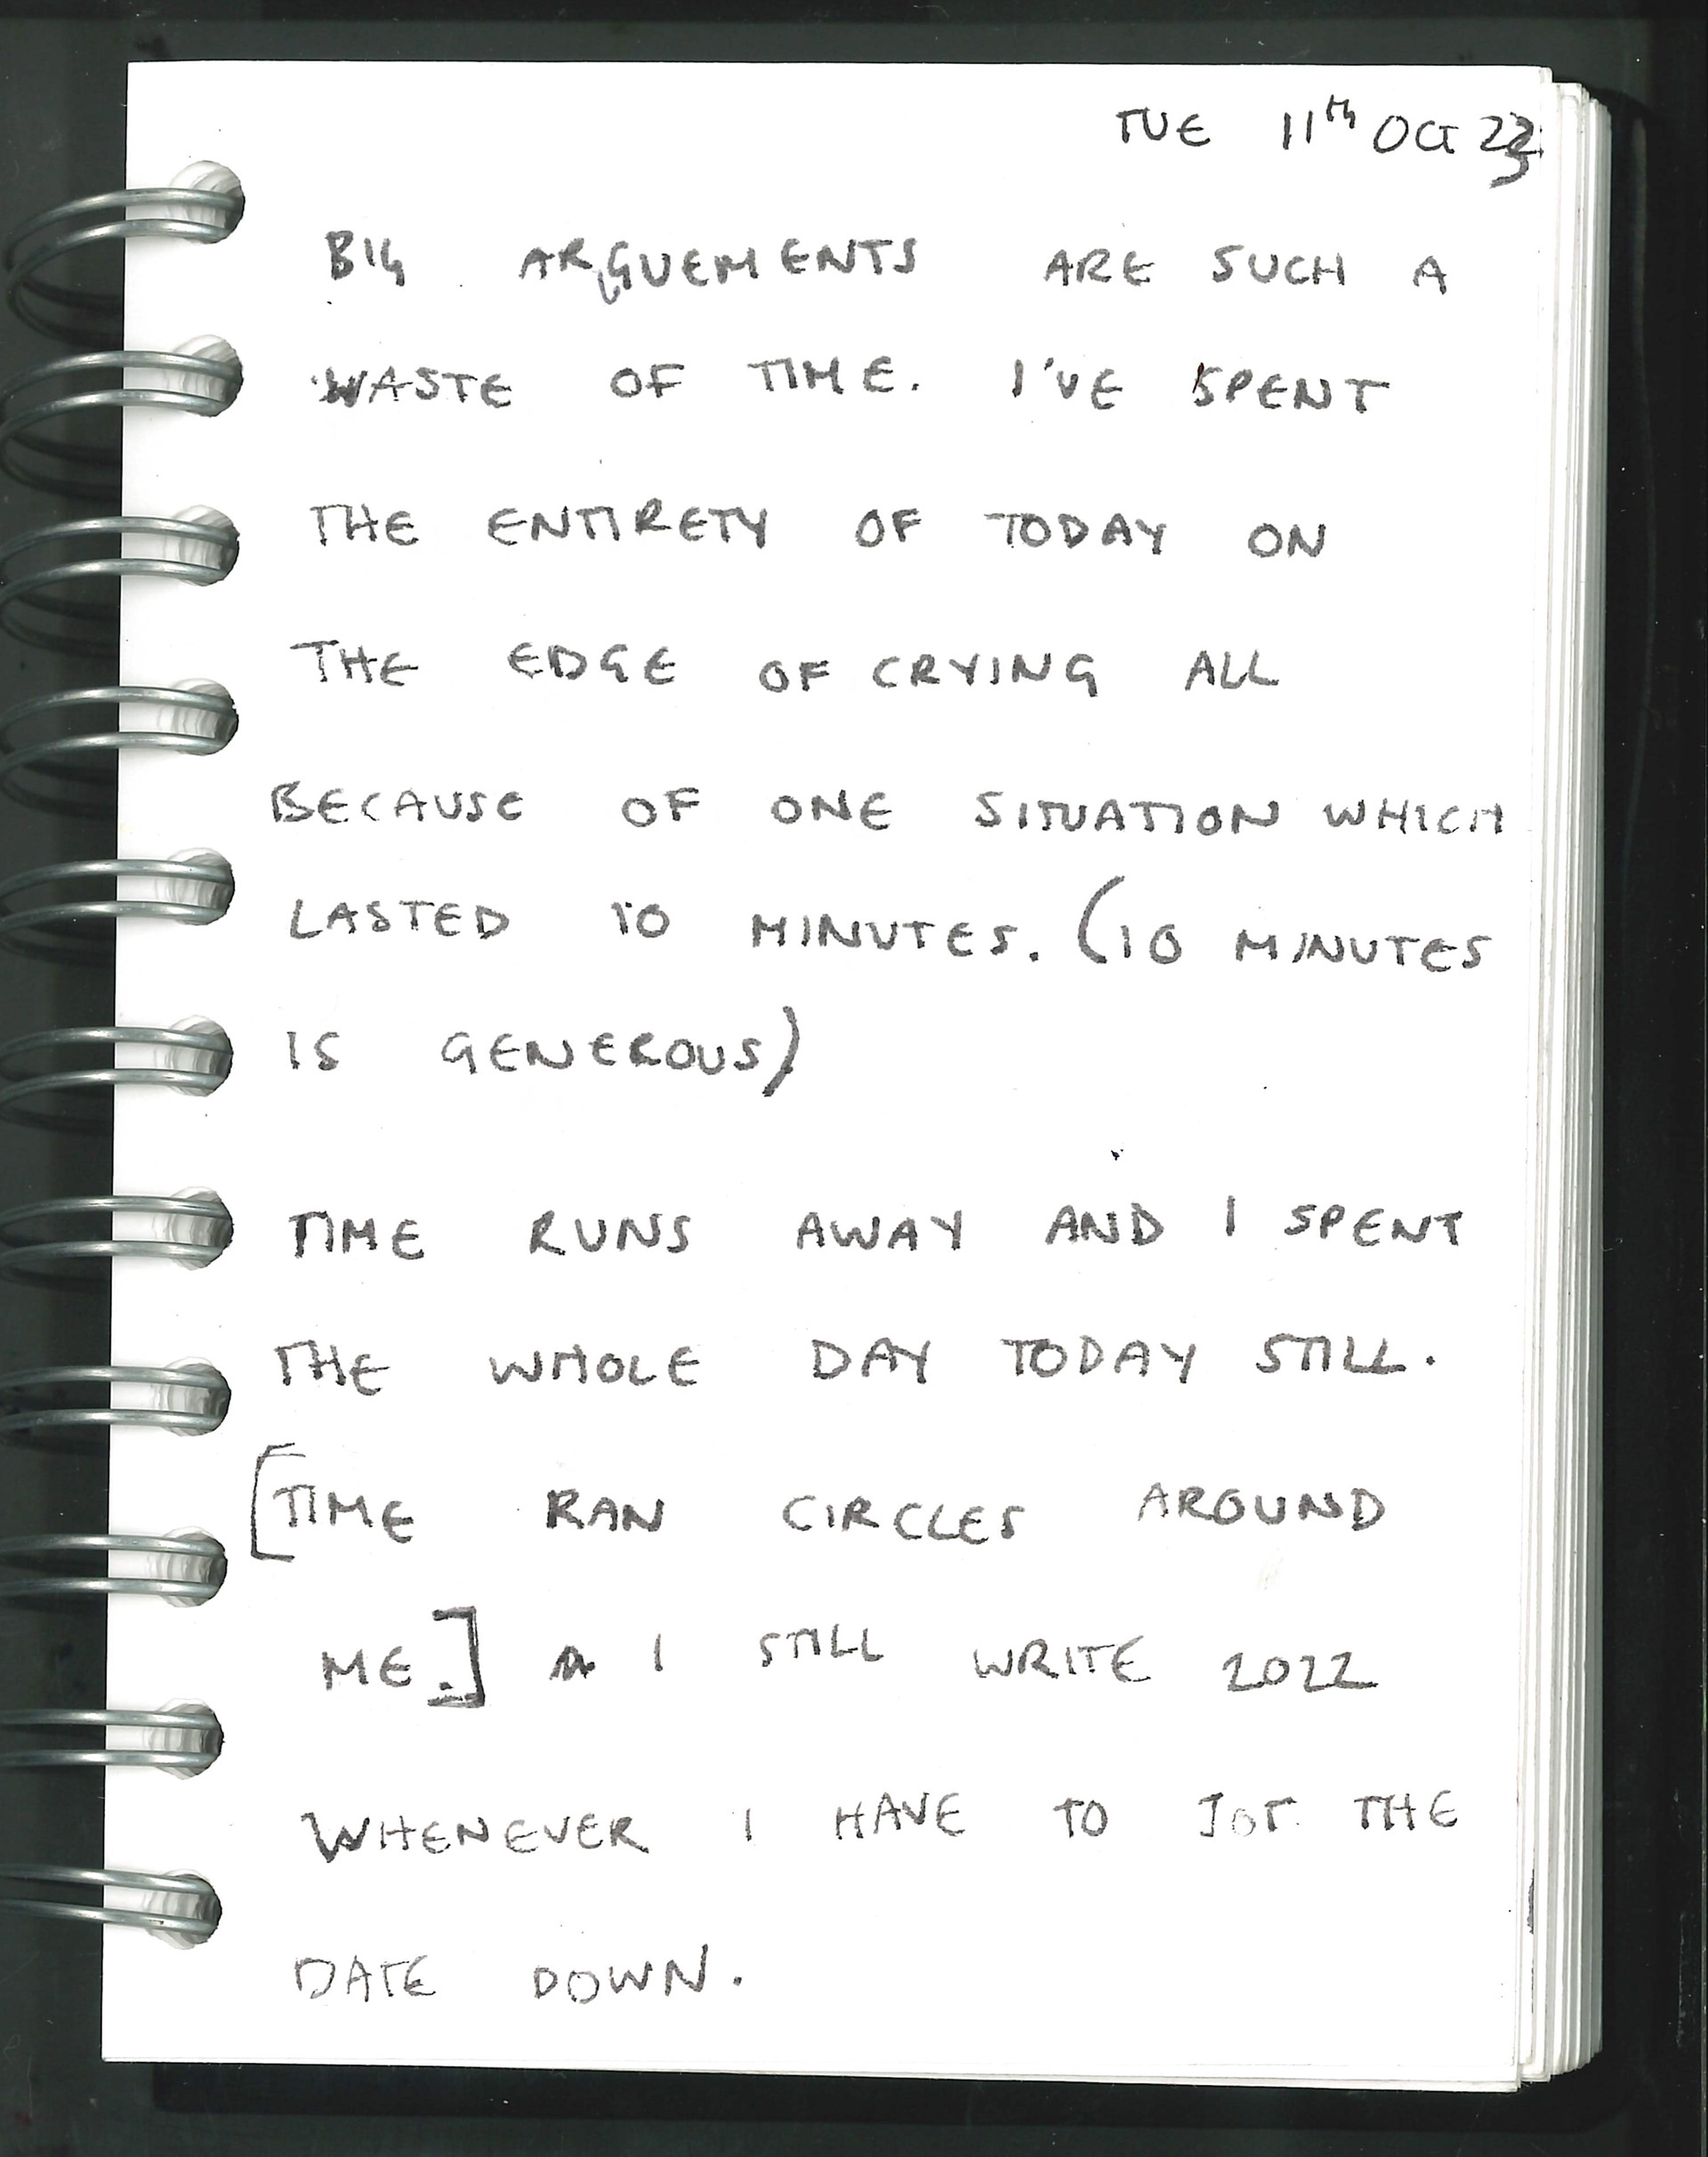 TUE 11th OCT 23
BIG ARGUEMENTS ARE SUCH A
WASTE OF TIME. I'VE SPENT
THE ENTIRETY OF TODAY ON
THE EDGE OF CRYING ALL
BECAUSE OF ONE SITUATION WHICH
LASTED 10 MINUTES. (10 MINUTES
IS GENEROUS)
TIME RUNS AWAY AND I SPENT
THE WHOLE DAY TODAY STILL.
[TIME RAN CIRCLES AROUND
ME.] I STILL WRITE 2022
WHENEVER I HAVE TO JOT THE
DATE DOWN.